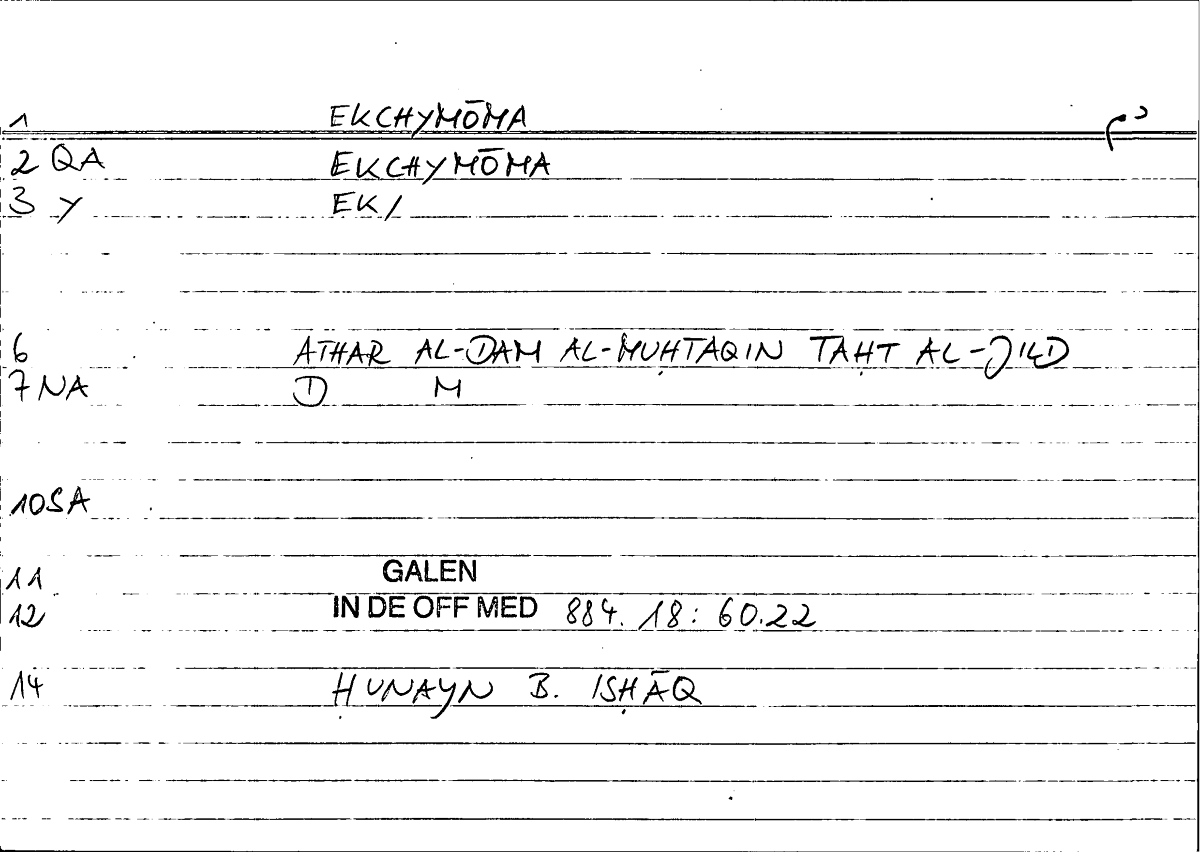 1 EKCHYMŌMA
2 QA EKCHYMŌMA
3 Y EK/
6 ATHAR AL-DAM AL-MUḤTAQIN TAḤT AL-JILD
7 NA D M
10 SA
11 GALEN
12 IN DE OFF MED 884. 18: 60.22
14 ḤUNAYN B. ISḤĀQ